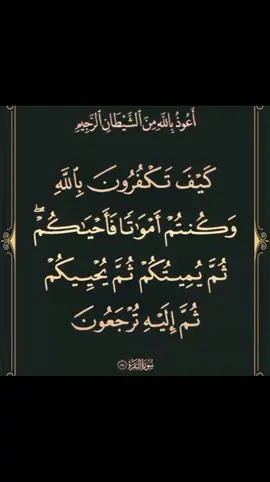 أَعُوذُ بِاللَّهِ مِنَ ٱلشَّيْطَانِ ٱلرَّجِيمِ
كَيْفَ تَكْفُرُونَ بِٱللَّهِ
وَكُنتُمْ أَمْوَٰتًا فَأَحْيَـٰكُمْ ۖ
ثُمَّ يُمِيتُكُمْ ثُمَّ يُحْيِيكُمْ
ثُمَّ إِلَيْهِ تُرْجَعُونَ
سُورَةُ البَقَرَةِ